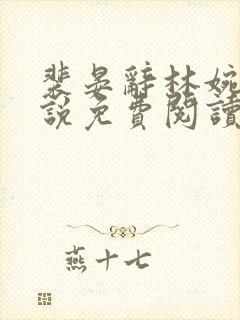 裴晏辭林婉
說免費閱讀
燕十七